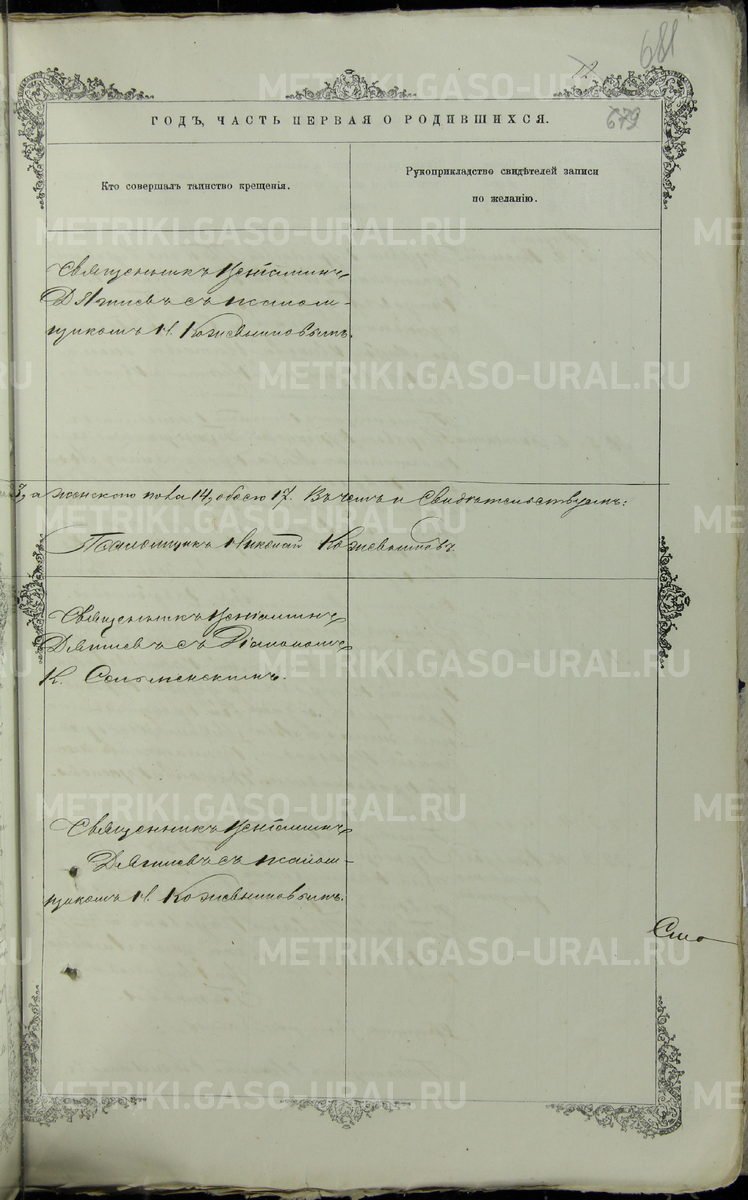 681
12
ГОДЪ, ЧАСТЬ ПЕРВАЯ О РОДИВШИХСЯ.
679
Кто совершалъ таинство крещенія.
Рукоприкладство свидѣтелей записи
по желанію.
Священникъ Веніаминъ
Дягилевъ съ псалом-
щикомъ Н. Кожевниковымъ.
3, а женского пола 14, обоего 17. Въ чемъ и свидѣтельствуемъ:
Псаломщикъ Николай Кожевниковъ
Священникъ Веніаминъ
Дягилевъ съ Діакономъ
К.
Священникъ Веніаминъ
Дягилевъ съ псалом-
щикомъ Н. Кожевниковымъ.
METRIKI.GASO-URAL.RU